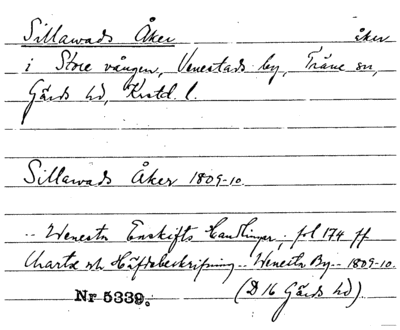 Sillawads Åker åker
i Store vången, Venestads by, Träne sn,
Gärds hd, Krstd. l.
Sillawads Åker 1809-10.
.. Wenesta Enskifts Handlingar, fol 174 ff
Charta och Häfdebeskrifning .. Wenesta By .. 1809-10.
(D 16 Gärds hd)
Nr 5339.